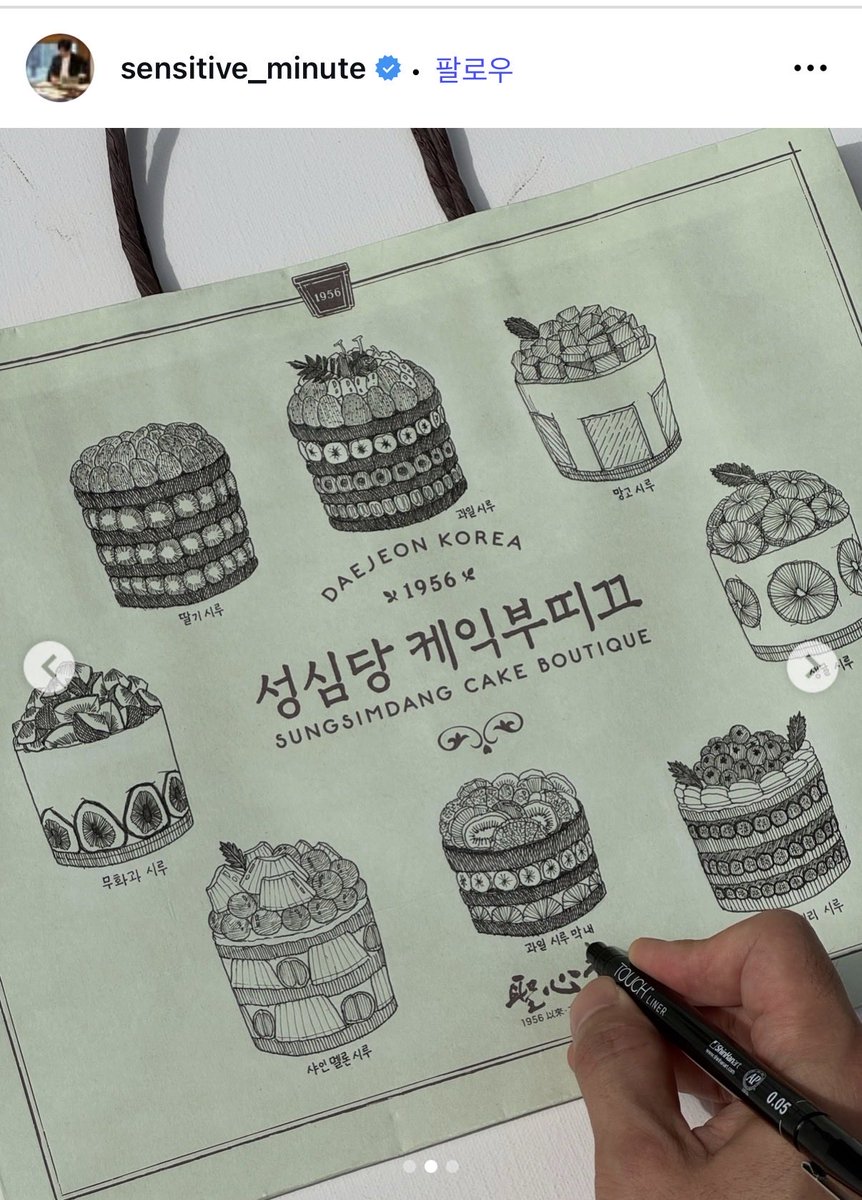 sensitive_minute • 팔로우
1956
망고시루
과일시루
딸기시루
DAEJEON KOREA
1956
성심당 케익부띠끄
SUNGSIMDANG CAKE BOUTIQUE
시루
무화과 시루
리 시루
과일 시루 막내
샤인 멜론 시루
聖心
1956 以來
TOUCH LINER
ShinHanart
www.shinhanart.com
AP
0.05